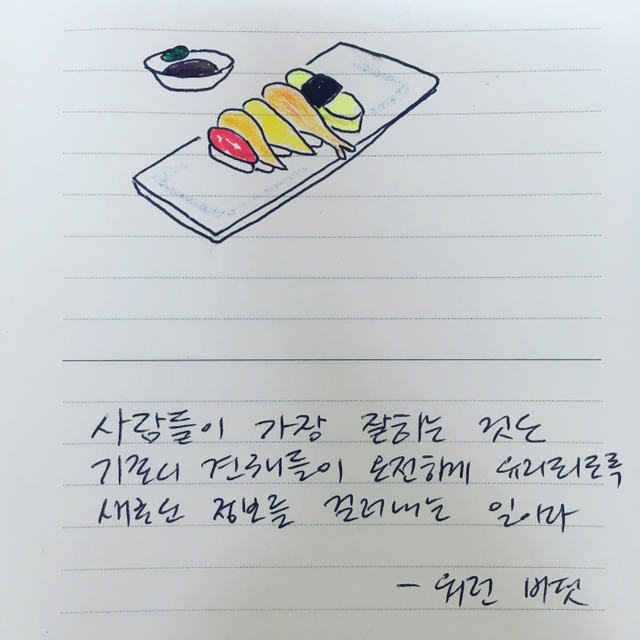 사람들이 가장 잘하는 것은
기존의 견해들이 온전하게 유지되도록
새로운 정보를 걸러내는 일이다
- 워런 버핏